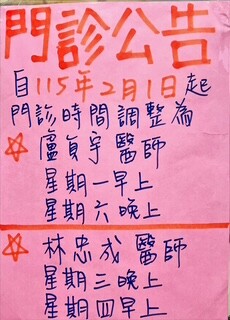 門診公告
自115年2月1日起
門診時間調整為
☆盧貞宇 醫師
星期一早上
星期六晚上
☆林忠成 醫師
星期三晚上
星期四早上